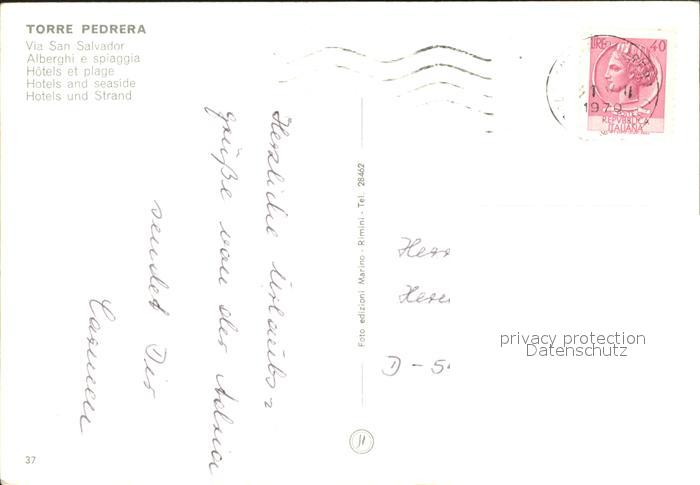 TORRE PEDRERA
Via San Salvador
Alberghi e spiaggia
Hôtels et plage
Hotels and seaside
Hotels und Strand
Herzliche Urlaubs=
grüße von der Adria
sendet Dir
Carmen
Foto edizioni Marino - Rimini - Tel. 28462
LIRE 40
1970
REPVBBLICA
ITALIANA
Herr
D - 5
privacy protection
Datenschutz
37